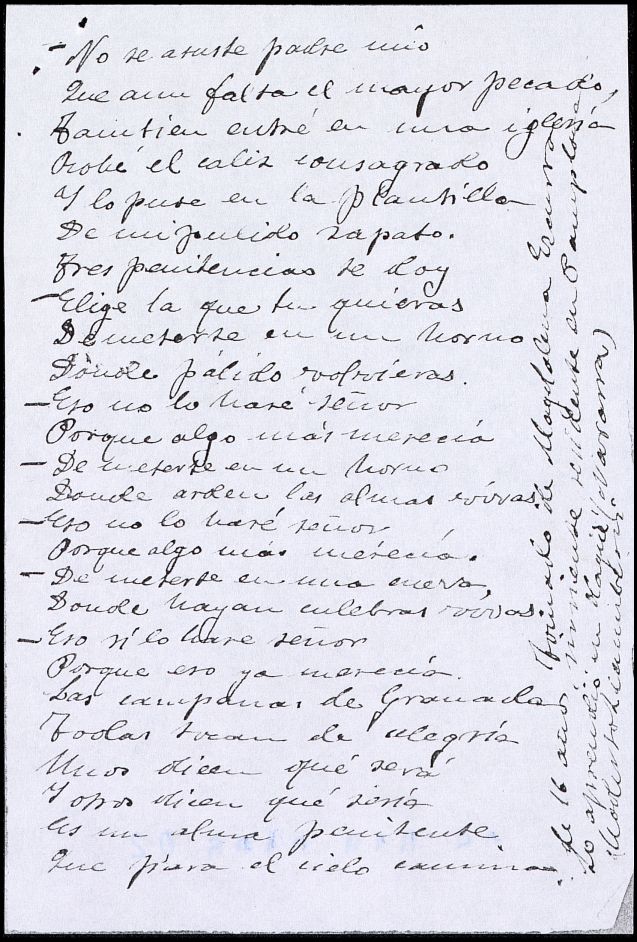 - No se asuste padre mío
Que aun falta el mayor pecado,
Tambien entré en una iglesia
Robé el caliz consagrado
Y lo puse en la plantilla
De mi pulido zapato.
Tres penitencias te doy
- Elige la que tu quieras
De meterte en un horno
Donde pálido volvieras.
- Eso no lo haré señor
Porque algo más merecía
- De meterte en un horno
Donde arden las almas vivas
- Eso no lo haré señor
Porque algo más merecía.
- De meterte en una cueva,
Donde hayan culebras vivas
- Eso sí lo hare señor
Porque eso ya merecía.
Las campanas de Granada
Todas tocan de alegría
Unos dicen qué será
Y otros dicen qué sería
Es un alma penitente
Que para el cielo camina.
Tomado de Magdalena
de 16 años, sirviente residente en Pamplona
Lo aprendió en (Navarra)